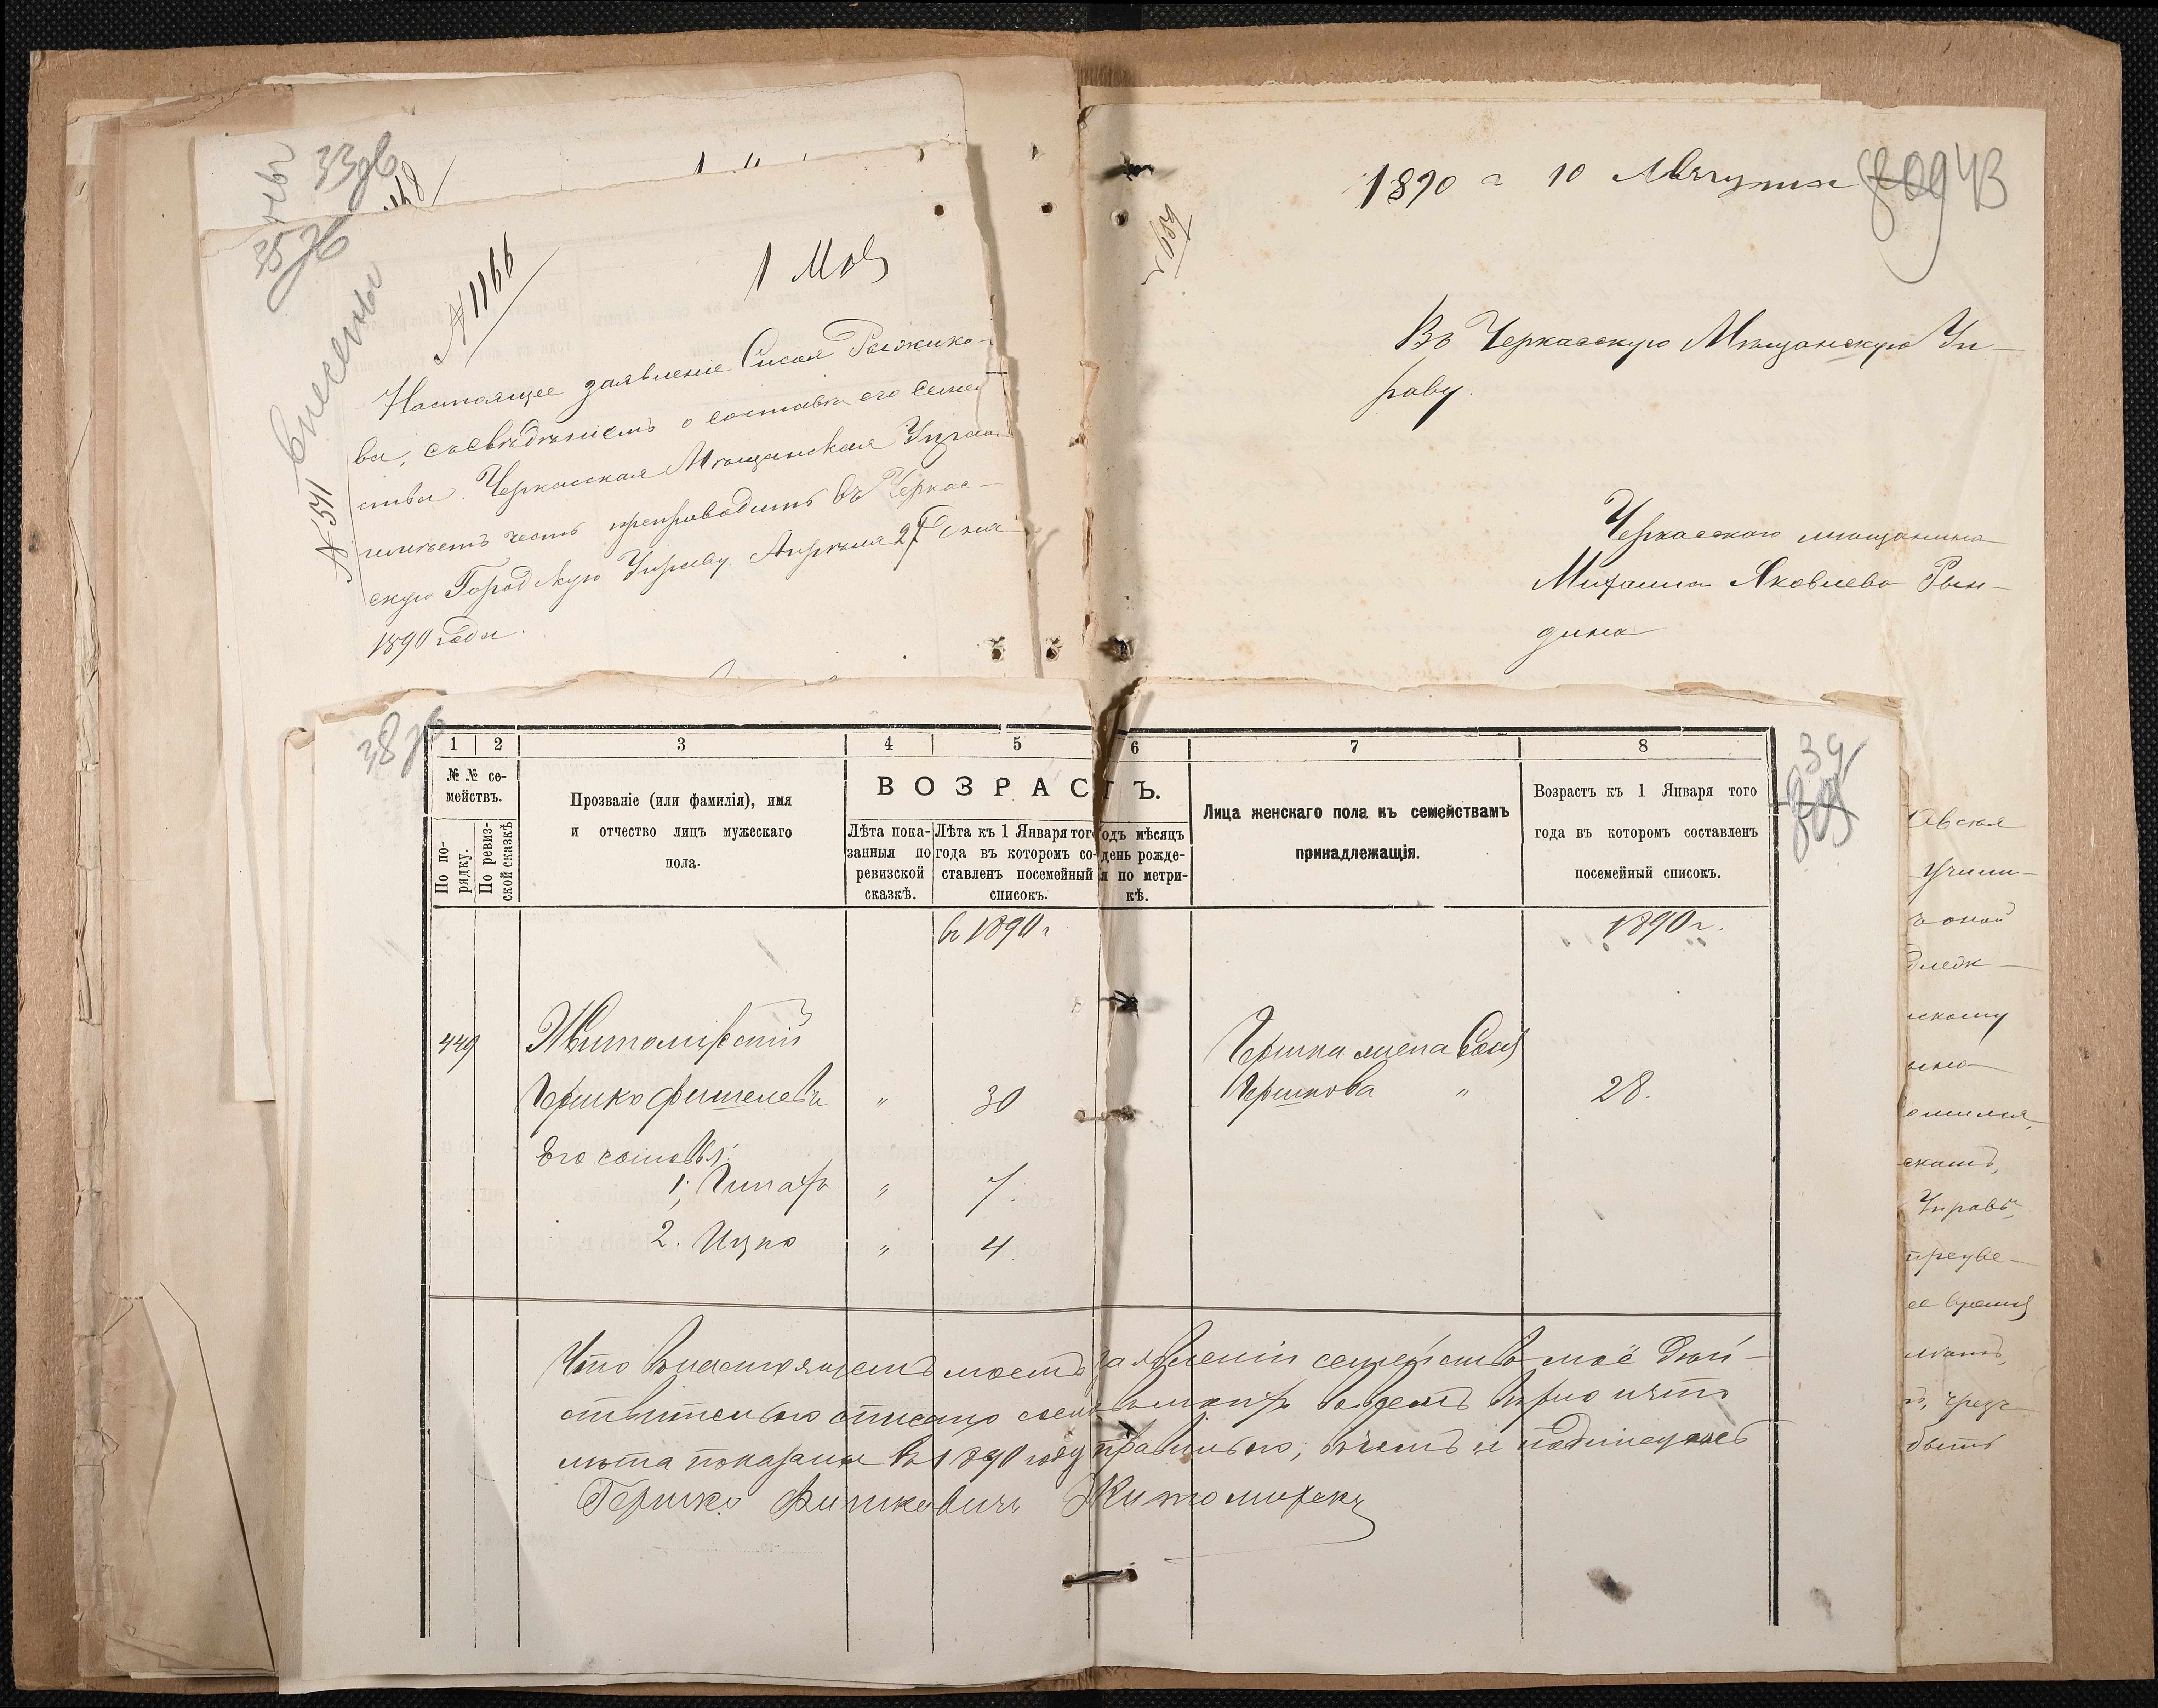 33об
35об
внесены
№ 1166
1 Мая
№ 571
Настоящее заявленіе Рыжико-
ва, съ свѣдѣніемъ о составѣ его семей
ства Черкасская Мѣщанская Управа
имѣетъ честь препроводить въ Черкас-
скую Городскую Управу. Апрѣля 27 дня
1890 года.
1890 г 10 Августа
43
Въ Черкасскую Мѣщанскую Уп-
раву.
Черкасскаго мѣщанина
Михаила Яковлева Рын-
дина
38об
39
1 2 3 4 5 6 7 8
№ № се-
мействъ.
По по-
рядку.
По ревиз-
ской сказкѣ
Прозваніе (или фамилія), имя
и отчество лицъ мужескаго
пола.
ВОЗРАСТЪ.
Лѣта пока-
занныя по
ревизской
сказкѣ.
Лѣта къ 1 Января того
года въ котором со-
ставленъ посемейный
списокъ.
одъ мѣсяцъ
день рожде-
я по метри-
кѣ.
Лица женскаго пола къ семействамъ
принадлежащія.
Возрастъ къ 1 Января того
года въ котором составленъ
посемейный списокъ.
въ 1890 г
1890 г.
449 Житомірскій
Гершко Фишелевъ " 30
Гершка жена
Гершкова " 28.
Его сыновья:
1, " 7.
2. Ицко " 4
Что въ настоящемъ моемъ заявленіи семейство моё дѣй-
ствительно описано вѣрно и что
лѣта показаны въ 1890 году правильно, въ чемъ и подписуюсь
Гершко Фишковичъ Житомирскі
учили-
оной
длеж-
скому
Управѣ,
ее время
чрезъ
быть